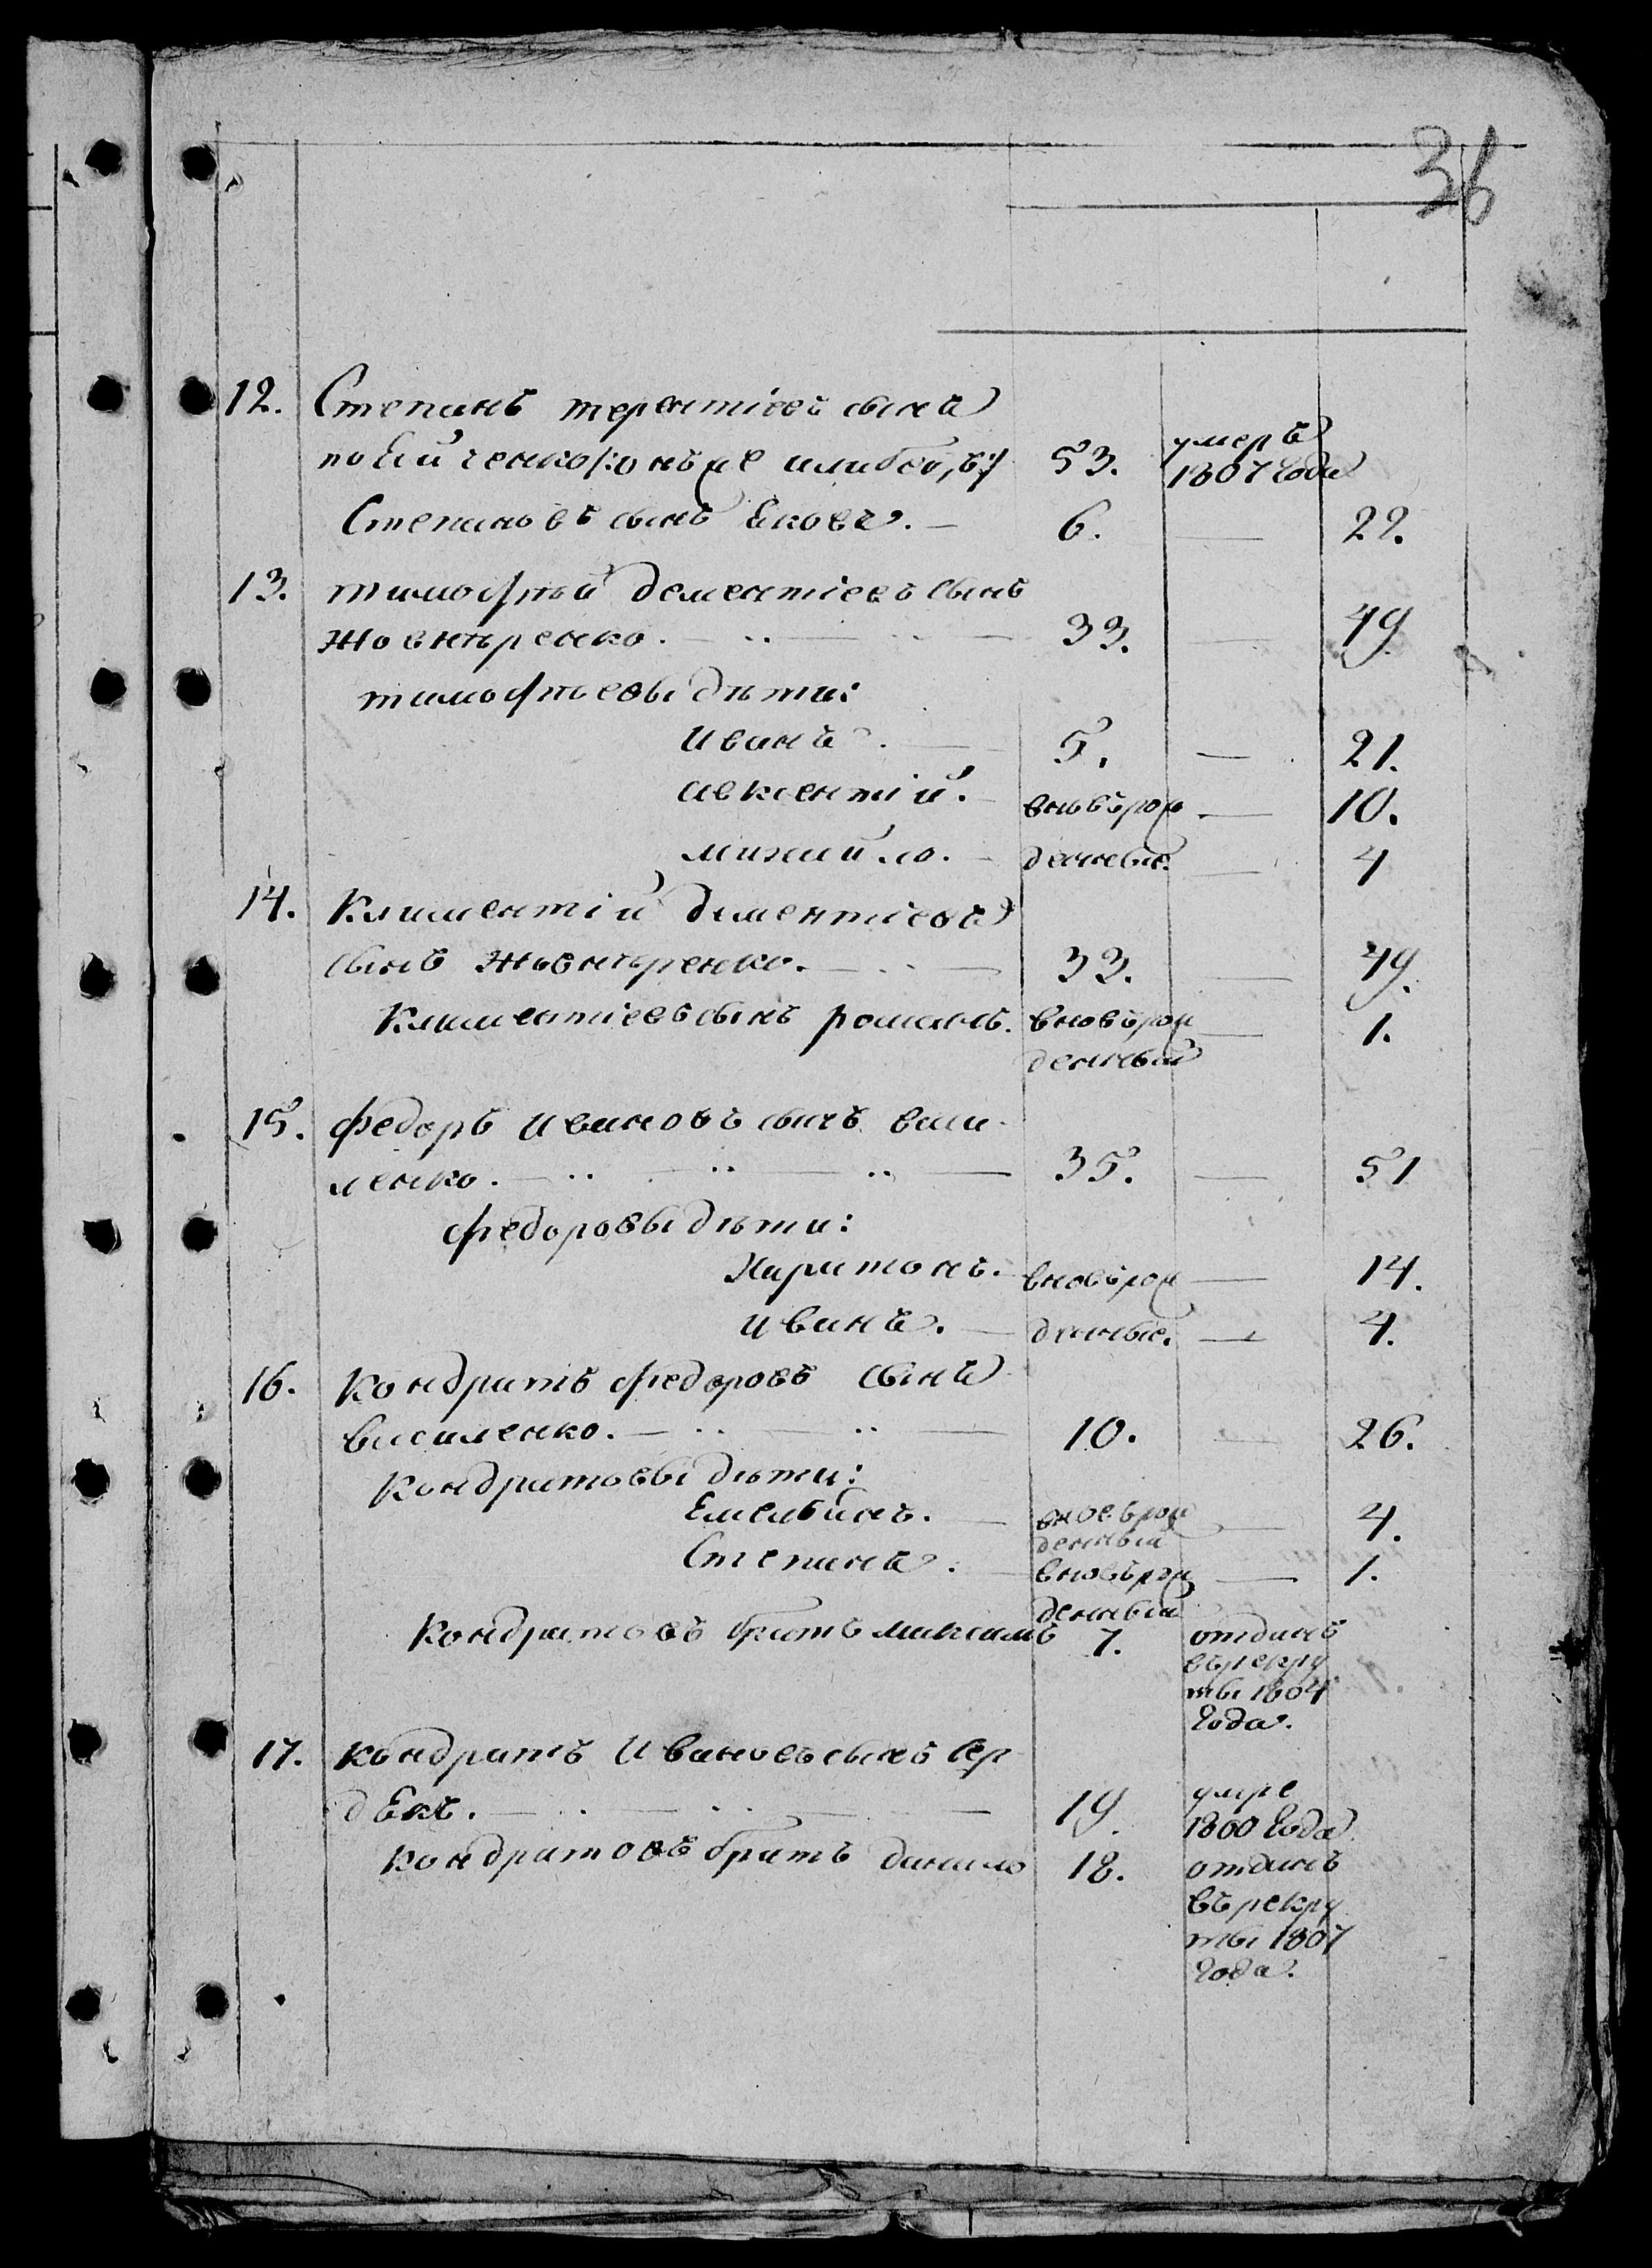 36
12. Степанъ терентіевъ сынъ
53. умеръ 1807 года
Степановъ сынъ Яковъ. — 6. — 22.
13. тимофѣй дементіевъ сынъ
Жовнѣренко. — 33. — 49
тимофѣевы дѣти:
иванъ. — 5. — 21.
авксентій. — вновьрож — 10.
михайло. — денные. — 4
14. Климентій дементіевъ
сынъ Жовнѣренко. — 33. — 49.
Климентіевъ сынъ романъ. вновьрож — 1.
денный
15. федоръ ивановъ сынъ васи
ленко. — 35. — 51
федоровы дѣти:
Харитонъ. — вновьрож — 14.
иванъ. — денные. — 4.
16. Кондратъ федоровъ сынъ
василенко. — 10. — 26.
Кондратовы дѣти:
Емельянъ. — вновьрож денный — 4.
Степанъ. — вновьрож — 1.
денный
Кондратовъ братъ максимъ 7. отданъ
въ рекру
ты 1804
года.
17. кондратъ Ивановъ сынъ Сер
дЕкъ. — 19. умре
1800 года
кондратовъ братъ данило 18. отданъ
въ рекру
ты 1807
года.